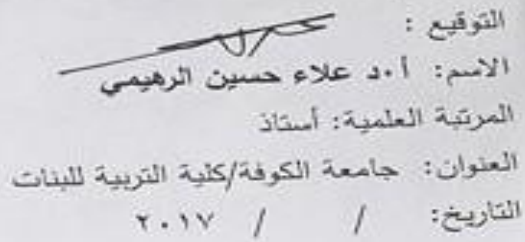 التوقيع :
الاسم: أ.د علاء حسين الرهيمي
المرتبة العلمية: أستاذ
العنوان: جامعة الكوفة/كلية التربية للبنات
التاريخ: / / ٢٠١٧